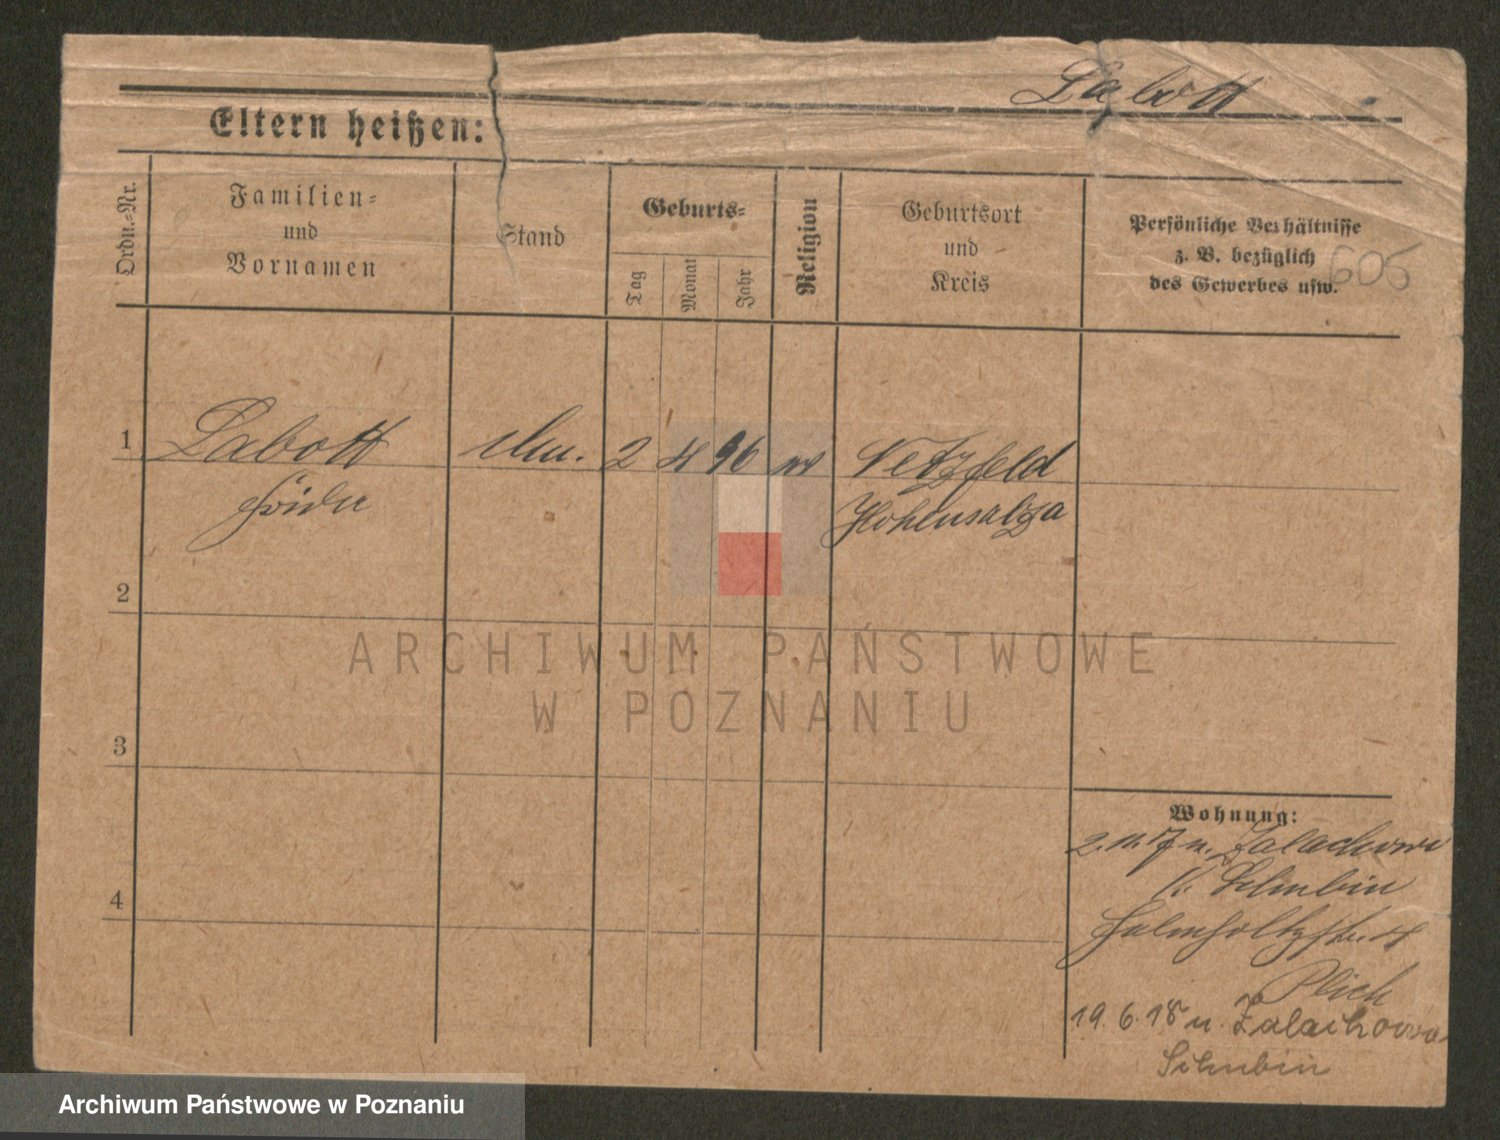 Labott
Eltern heißen:
Ordn.-Nr.
Familien-
und
Vornamen
Stand
Geburts-
Tag
Monat
Jahr
Religion
Geburtsort
und
Kreis
Persönliche Verhältnisse
z. B. bezüglich
des Gewerbes usw.
605
1
Labott
2 4 96
Netzfeld
Hohensalza
2
3
4
Wohnung:
Zalachowo
Schubin
19.6.18 n. Zalachowo
Schubin
ARCHIWUM PAŃSTWOWE
W POZNANIU
Archiwum Państwowe w Poznaniu